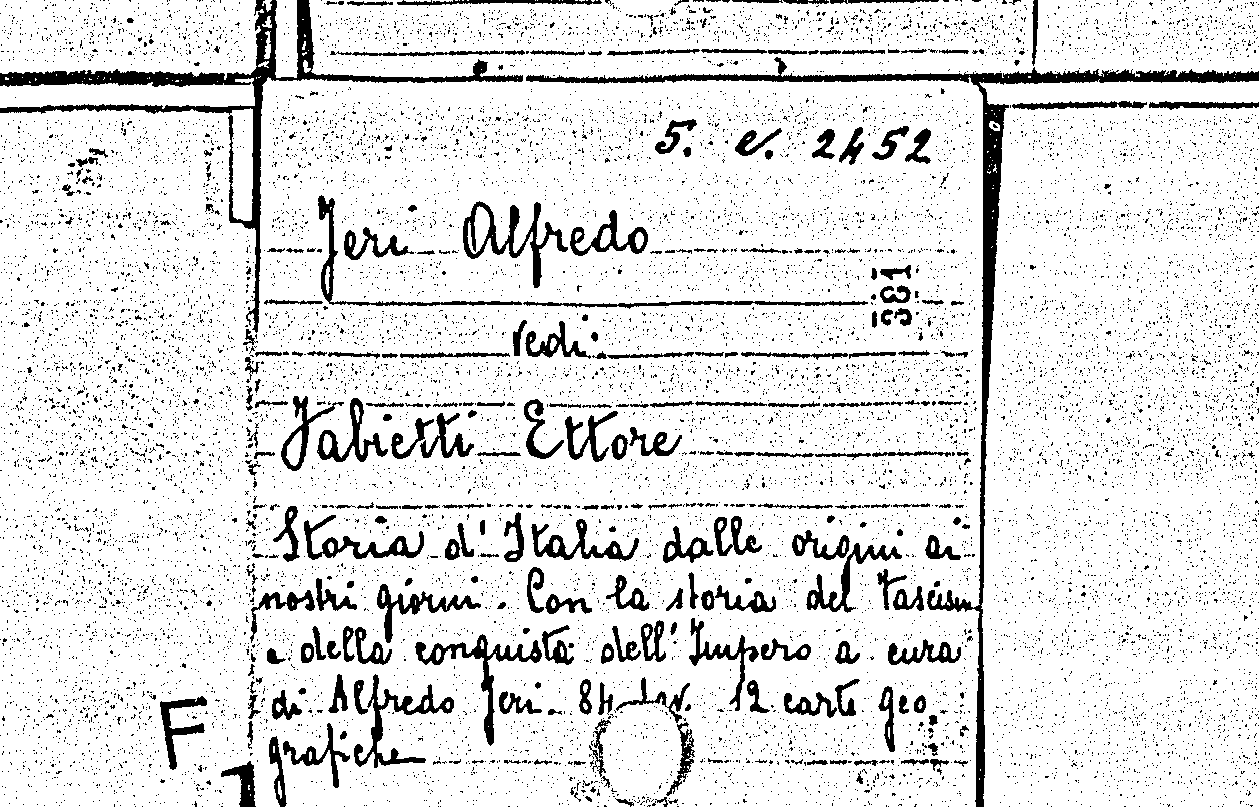 5. e. 2452
Jeri Alfredo
381
vedi:
Fabietti Ettore
Storia d'Italia dalle origini ai
nostri giorni. Con la storia del Fascism.
e della conquista dell'Impero a cura
di Alfredo Jeri. 84 tav. 12 carte geo
grafiche
F